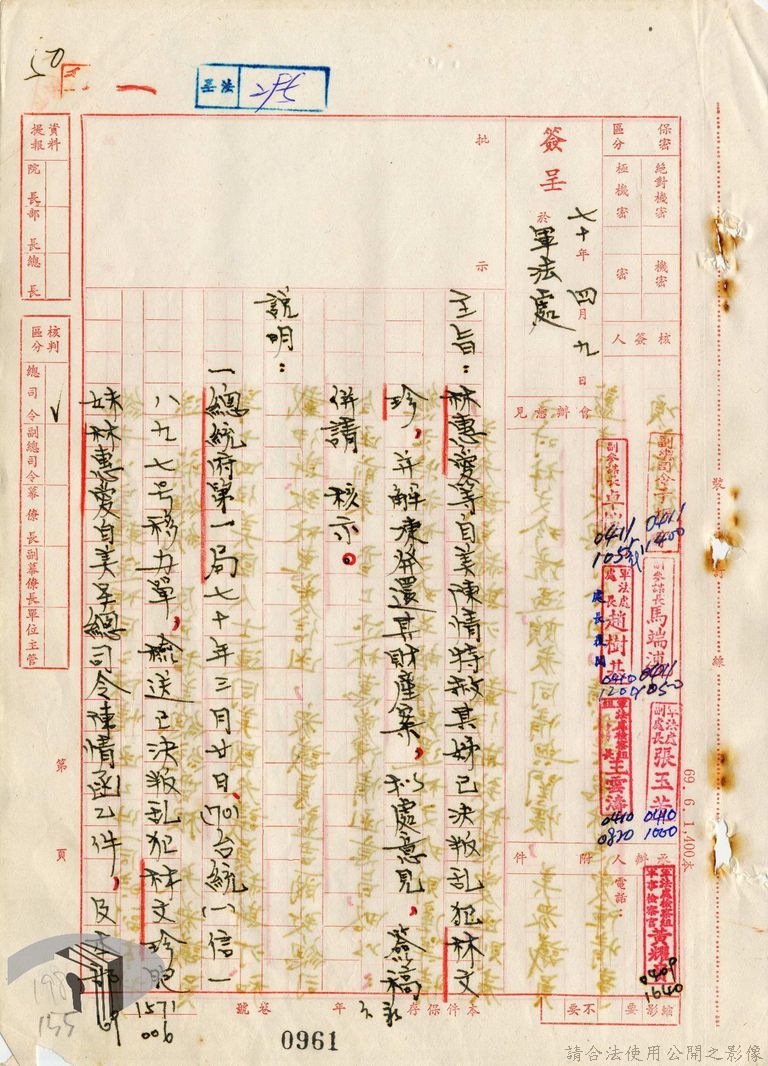 50
法 285
保密區分
絕對機密
機密
極機密
密
簽呈
七十年四月九日
於軍法處
批示
核簽人
會辦意見
副參謀長馬端浦
0411 1050
0411 1400
0411 1055
軍法處處長趙樹
0410 1200
軍法處副處長張玉
0410 1000
王雲濤
0410 0820
軍法處檢察組軍事檢察官黃耀
0409 1640
承辦人
電話：
附件
主旨：林惠等自美陳情特赦其姊已決叛乱犯林文
珍，并解凍發還其財產案，本處意見，簽稿
併請 核示。
說明：
一總統府第一局七十年三月廿日(70)台統(一)信一
八九七号移办單，檢送已決叛乱犯林文珍之
妹林惠愛自美呈總司令陳情函乙件，及本部
資料提報
院長
部長
總長
核判區分
總司令 ✓
副總司令
幕僚長
副幕僚長
單位主管
第 頁
裝 訂 線
69．6．1,400本
縮影 要 不要
本件保存 永久 年
卷號 1571 006
0961
請合法使用公開之影像